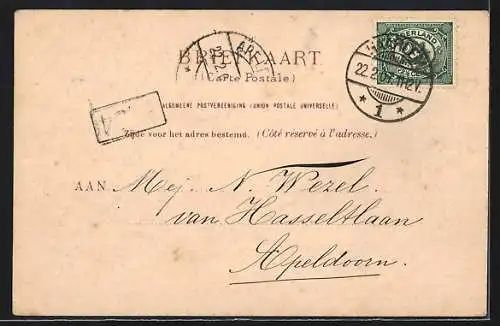 BRIEFKAART
(Carte Postale)
ALGEMEENE POSTVEREENIGING (UNION POSTALE UNIVERSELLE)
Zijde voor het adres bestemd. (Côté réservé à l'adresse.)
AAN Mej. N. Wezel.
van Hasseltlaan
Apeldoorn.
NEDERLAND
22.2
1